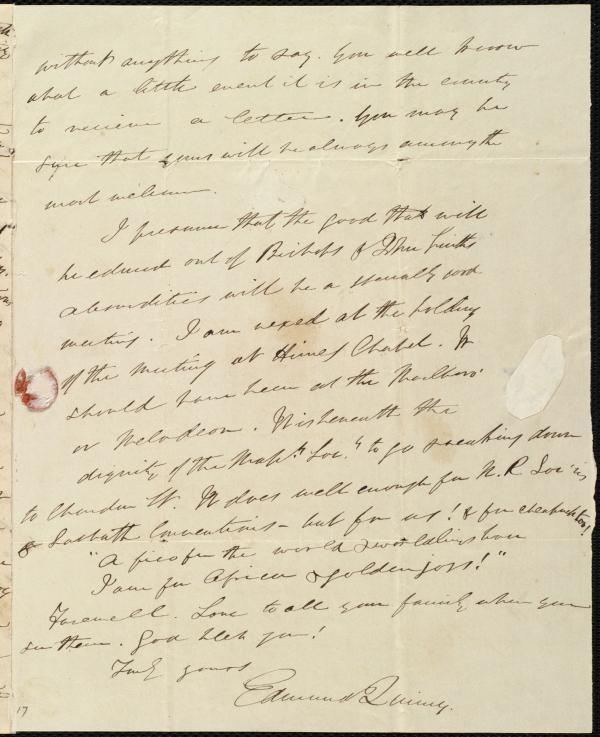 without anything to say. You well know
what a little event it is in the country
to recieve a letter. You may be
sure that yours will be always among the
most welcome.
I presume that the good that will
be educed out of Bishop's & John Smith's
absurdities will be a usually good
meeting. I am vexed at the holding
of the meeting at Himes' Chapel. It
should have been at the Marlboro'
or Melodeon. It is beneath the
dignity of the Mass. Soc. to go sneaking down
to Chardon St. It does well enough for N. R. Soc'ies
& Sabbath Conventions – but for us! & for cheapness too!
"A fico for the world & worldlings base
I am for Africa & golden joys!"
Farewell. Love to all your family when you
see them. God bless you!
Truly yours
Edmund Quincy.
17